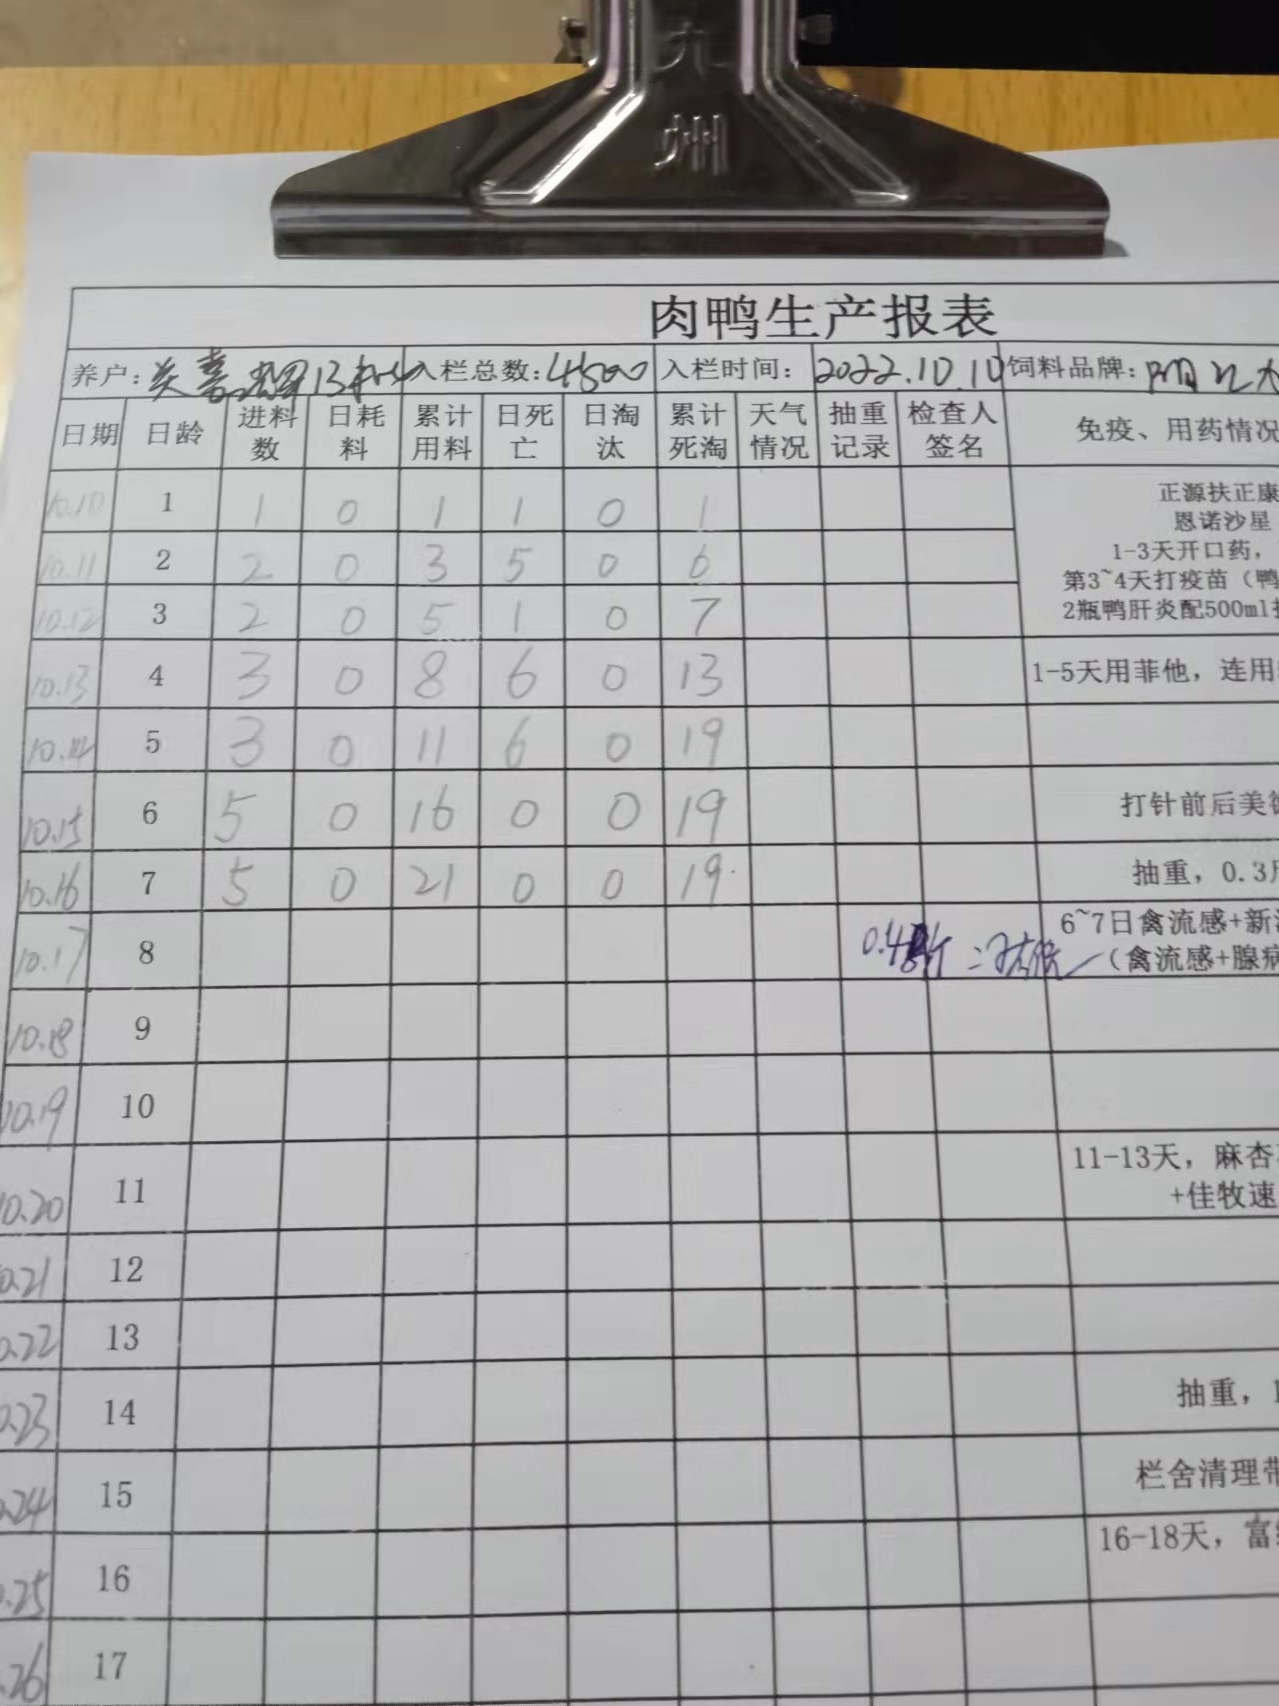 九
州
肉鸭生产报表
养户: 入栏总数:4500 入栏时间: 2022.10.10 饲料品牌:
日期 日龄 进料数 日耗料 累计用料 日死亡 日淘汰 累计死淘 天气情况 抽重记录 检查人签名 免疫、用药情况
10.10 1 1 0 1 1 0 1
正源扶正康
恩诺沙星
10.11 2 2 0 3 5 0 6
1-3天开口药,
第3~4天打疫苗(鸭
10.12 3 2 0 5 1 0 7
2瓶鸭肝炎配500ml
10.13 4 3 0 8 6 0 13 1-5天用菲他, 连用
10.14 5 3 0 11 6 0 19
10.15 6 5 0 16 0 0 19 打针前后美
10.16 7 5 0 21 0 0 19 抽重, 0.3
10.17 8 6~7日禽流感+新
(禽流感+腺病
10.18 9
10.19 10
10.20 11 11-13天, 麻杏
+佳牧速
0.21 12
0.22 13
0.23 14 抽重,
.24 15 栏舍清理带
.25 16 16-18天, 富
.26 17